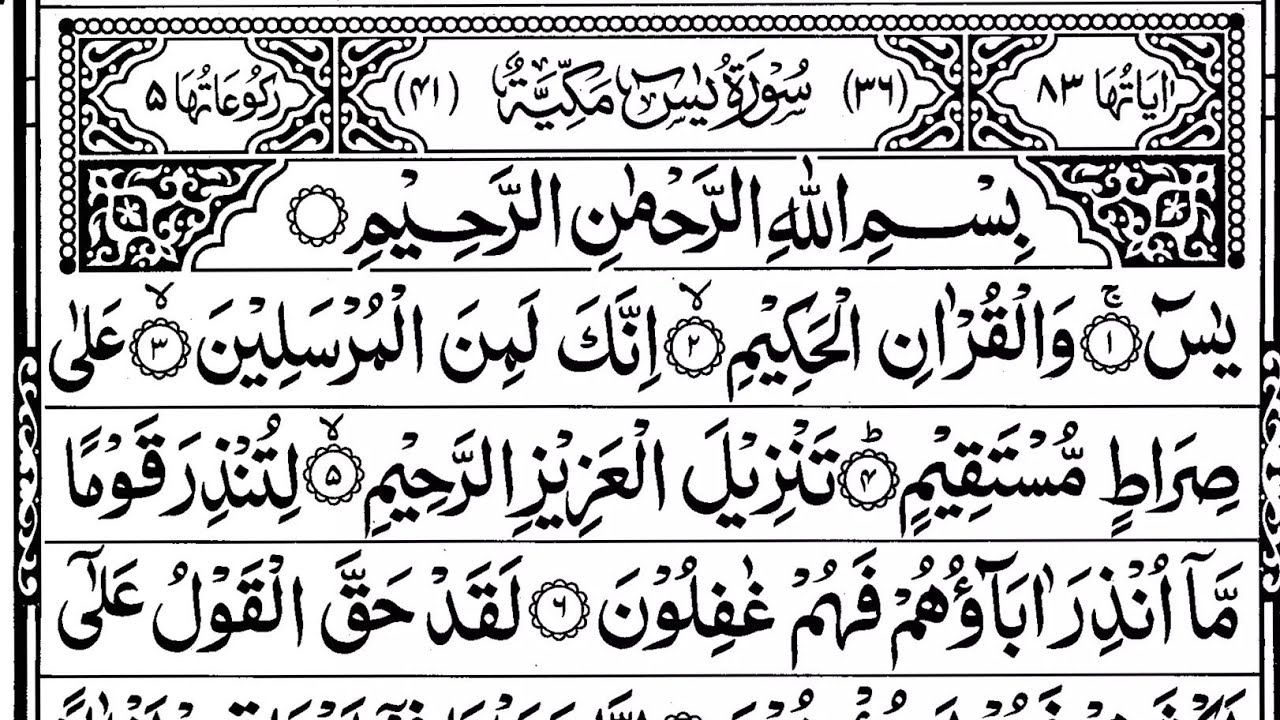 اٰيَاتُهَا ٨٣ (٣٦) سُوْرَةُ يٰسٓ مَكِّيَّةٌ (٤١) رُكُوْعَاتُهَا ٥
بِسْمِ اللّٰهِ الرَّحْمٰنِ الرَّحِيْمِ
يٰسٓ ۚ ﴿١﴾ وَالْقُرْاٰنِ الْحَكِيْمِ ۙ ﴿٢﴾ اِنَّكَ لَمِنَ الْمُرْسَلِيْنَ ۙ ﴿٣﴾ عَلٰى
صِرَاطٍ مُّسْتَقِيْمٍ ؕ ﴿٤﴾ تَنْزِيْلَ الْعَزِيْزِ الرَّحِيْمِ ۙ ﴿٥﴾ لِتُنْذِرَ قَوْمًا
مَّآ اُنْذِرَ اٰبَآؤُهُمْ فَهُمْ غٰفِلُوْنَ ﴿٦﴾ لَقَدْ حَقَّ الْقَوْلُ عَلٰٓى